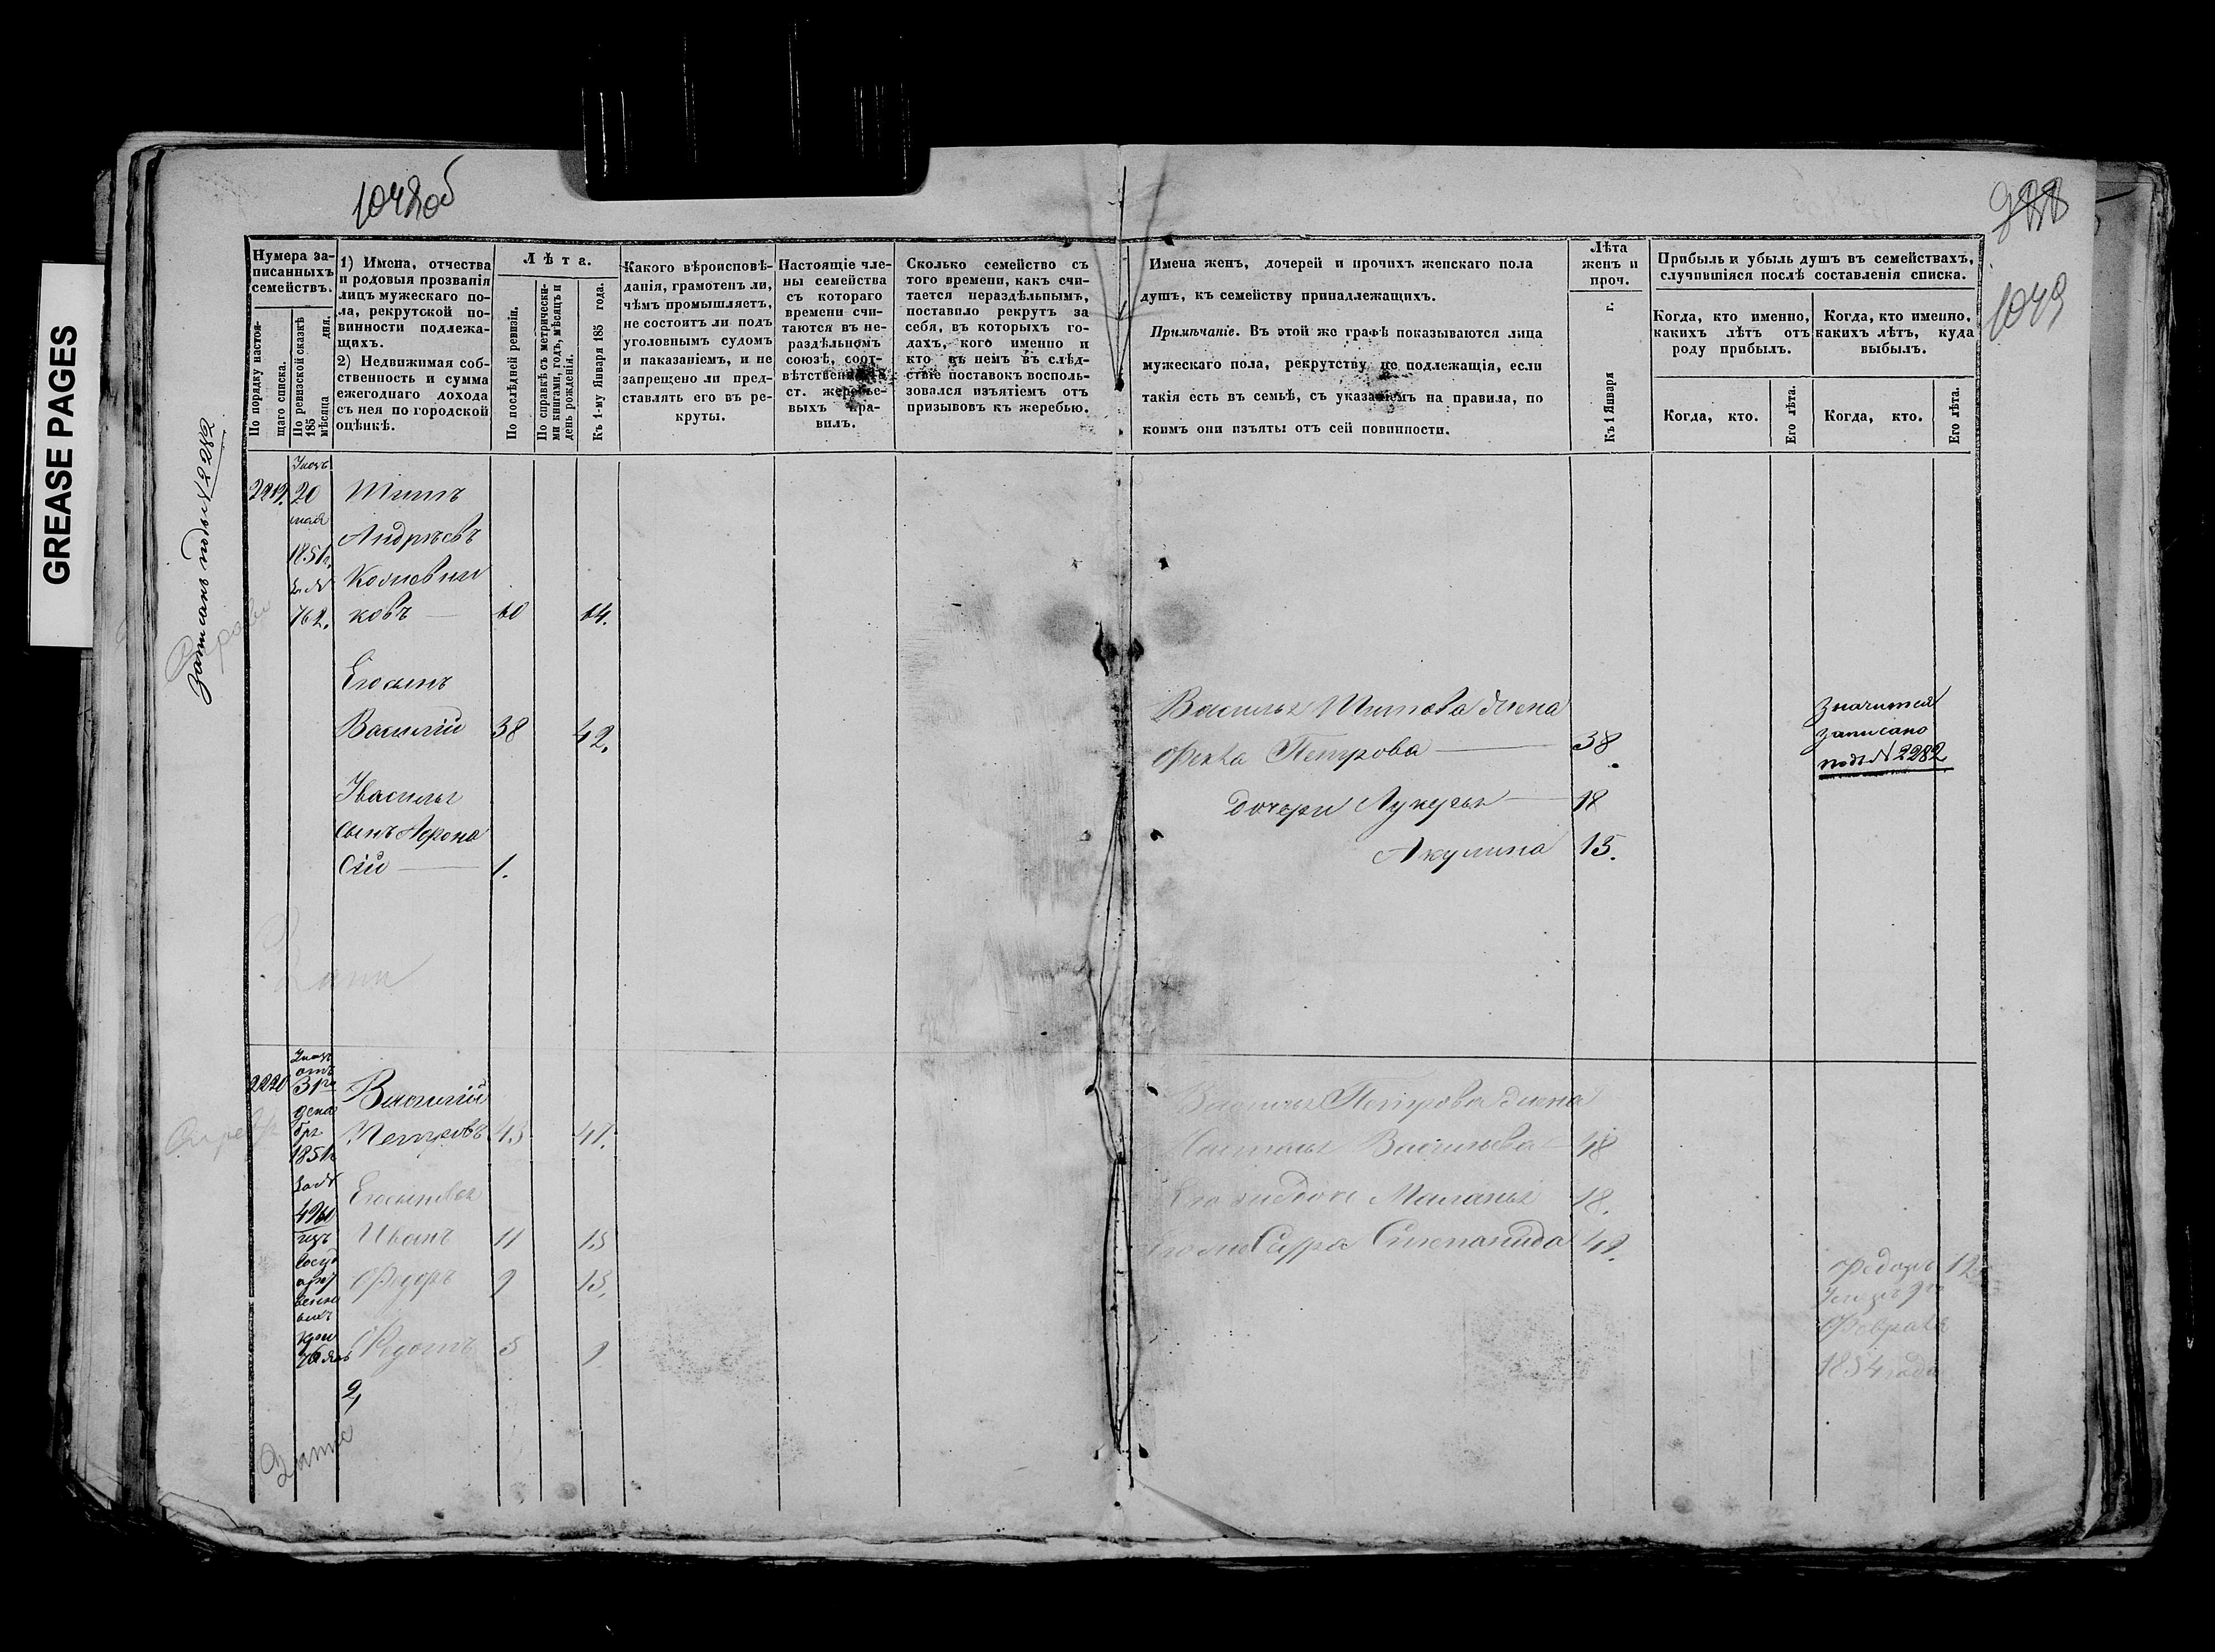 GREASE PAGES
1048об
1049
Нумера за-
писанныхъ
семействъ.
По порядку настоя-
щаго списка.
По ревизской сказкѣ
185
мѣсяца дня.
1) Имена, отчества
и родовыя прозванія
лицъ мужескаго по-
ла, рекрутской по-
винности подлежа-
щихъ.
2) Недвижимая соб-
ственность и сумма
ежегоднаго дохода
съ нея по городской
оцѣнкѣ.
Лѣта.
По послѣдней ревизіи.
По справкѣ съ метрически-
ми книгами, годъ, мѣсяцъ и
день рожденія.
Къ 1-му Января 185 года.
Какого вѣроисповѣ-
данія, грамотенъ ли,
чѣмъ промышляетъ,
не состоитъ ли подъ
уголовнымъ судомъ
и наказаніемъ, и не
запрещено ли пред-
ставлять его въ ре-
круты.
Настоящіе чле-
ны семейства
съ котораго
времени счи-
таются въ не-
раздѣльномъ
союзѣ, соот-
вѣтственно
ст. жеребье-
выхъ пра-
вилъ.
Сколько семейство съ
того времени, какъ счи-
тается нераздѣльнымъ,
поставило рекрутъ за
себя, въ которыхъ го-
дахъ, кого именно и
кто въ немъ въ слѣд-
ствіе поставокъ восполь-
зовался изъятіемъ отъ
призывовъ къ жеребью.
Имена женъ, дочерей и прочихъ женскаго пола
душъ, къ семейству принадлежащихъ.
Примѣчаніе. Въ этой же графѣ показываются лица
мужескаго пола, рекрутству не подлежащія, если
такія есть въ семьѣ, съ указаніемъ на правила, по
коимъ они изъяты отъ сей повинности.
Лѣта
женъ и
проч.
Къ 1 Января г.
Прибыль и убыль душъ въ семействахъ,
случившіяся послѣ составленія списка.
Когда, кто именно,
какихъ лѣтъ отъ
роду прибылъ.
Когда, кто именно,
какихъ лѣтъ, куда
выбылъ.
Когда, кто.
Его лѣта.
Когда, кто.
Его лѣта.
Записанъ подъ № 2282
2219.
Указъ
20
мая
1851г.
за №
762.
Титъ
Андрѣевъ
ковъ 60 64.
Его сынъ
Василій 38 42.
Василья
сынъ Афона
сій 1.
Василья Титова жена
Фекла Петрова 38
дочери Лукерья 18
Акулина 15.
Значится
записано
подъ № 2282
2220
Указъ
отъ
31го
дека
бря
1851г.
за №
4960
изъ
Государ
Василій
Петровъ 43 47.
Его сыновья
Иванъ 11 15
Федоръ 9 13.
Федотъ 5 9
Василья Петрова жена
Настасья Васильева 48
Маланья 18.
Степанида 49.
Федоръ 12
Указъ 9го
Февраля
1854 года